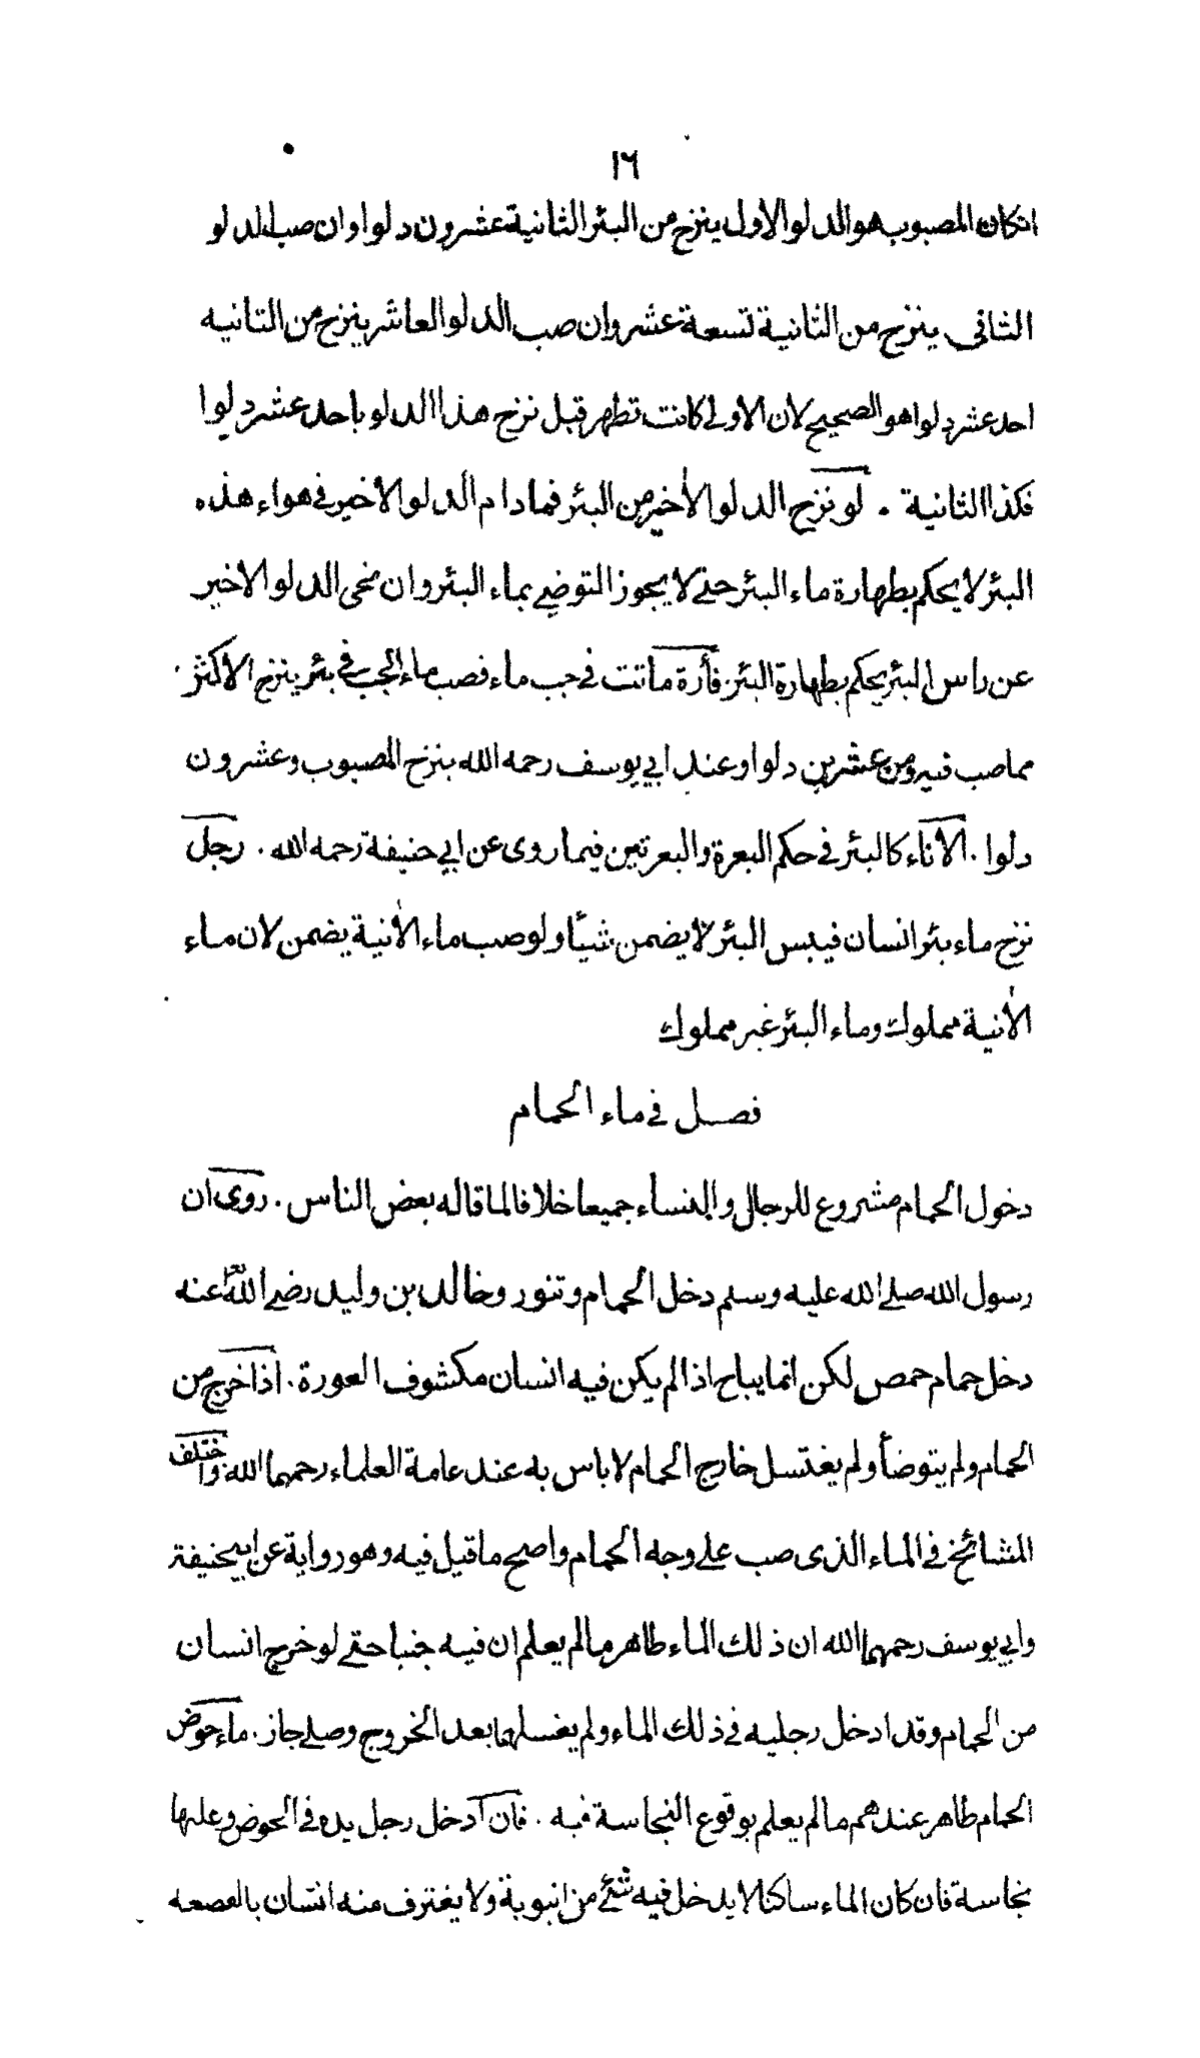 ١٦
انكان المصبوب هو الدلو الاول ينزح من البئر الثانية عشرون دلوا وان صب الدلو
الثانى ينزح من الثانية تسعة عشر وان صب الدلو العاشر ينزح من الثانيه
احد عشر دلوا هو الصحيح لان الاولى كانت تطهر قبل نزح هذا الدلو باحد عشر دلوا
فكذا الثانية . لو نزح الدلو الأخير من البئر فما دام الدلو الاخير فى هواء هذه
البئر لا يحكم بطهارة ماء البئر حتى لا يجوز التوضى بماء البئر وان نحى الدلو الاخير
عن راس البئر يحكم بطهارة البئر . فأرة ماتت فى جب ماء فصب ماء الجب فى بئر ينزح الاكثر
مما صب فيه ومن عشرين دلوا وعند ابي يوسف رحمه الله ينزح المصبوب وعشرون
دلوا . الأناء كالبئر فى حكم البعرة والبعرتين فيما روى عن ابي حنيفة رحمه الله . رجل
نزح ماء بئر انسان فيبس البئر لا يضمن شيئا ولو صب ماء الأنية يضمن لان ماء
الأنية مملوك وماء البئر غير مملوك
فصل فى ماء الحمام
دخول الحمام مشروع للرجال والنساء جميعا خلافا لما قاله بعض الناس . روى ان
رسول الله صلى الله عليه وسلم دخل الحمام وتنور وخالد بن وليد رضى الله عنه
دخل حمام حمص لكن انما يباح اذا لم يكن فيه انسان مكشوف العورة . اذا خرج من
الحمام ولم يتوضأ ولم يغتسل خارج الحمام لا باس به عند عامة العلماء رحمهما الله واختلف
المشائخ فى الماء الذى صب على وجه الحمام واصح ما قيل فيه وهو رواية عن ابيحنيفة
وابي يوسف رحمهما الله ان ذلك الماء طاهر ما لم يعلم ان فيه جنبا حتى لو خرج انسان
من الحمام وقد ادخل رجليه فى ذلك الماء ولم يغسلهما بعد الخروج وصلى جاز . ماء حوض
الحمام طاهر عندهم ما لم يعلم بوقوع النجاسة فيه . فان ادخل رجل يده فى الحوض وعليها
نجاسة فان كان الماء ساكنا لا يدخل فيه شئ من انبوبة ولا يغترف منه انسان بالقصعه